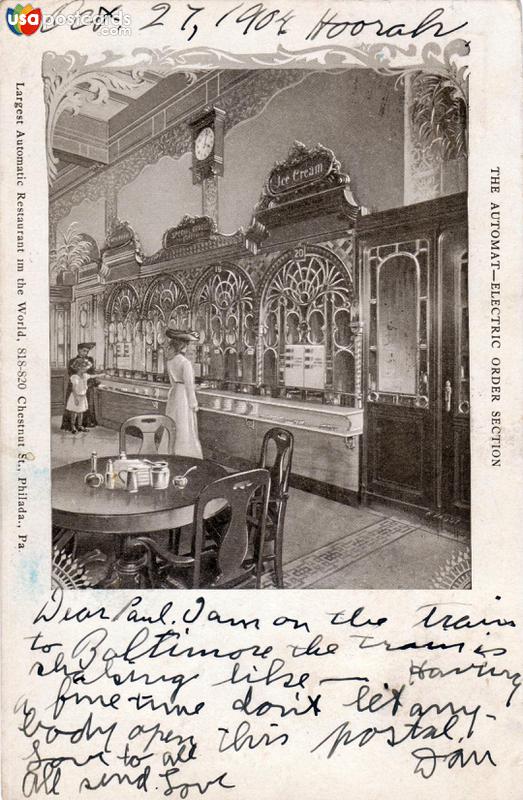 usapostcards.com
Oct. 27, 1904 Hoorah,
Ice Cream
20
THE AUTOMAT—ELECTRIC ORDER SECTION
Largest Automatic Restaurant im the World, 818-820 Chestnut St., Philada., Pa.
Dear Paul. I am on the train
to Baltimore the train is
shaking like — Having
a fine time don't let any-
body open this postal.
Love to all Dan
All send. Love